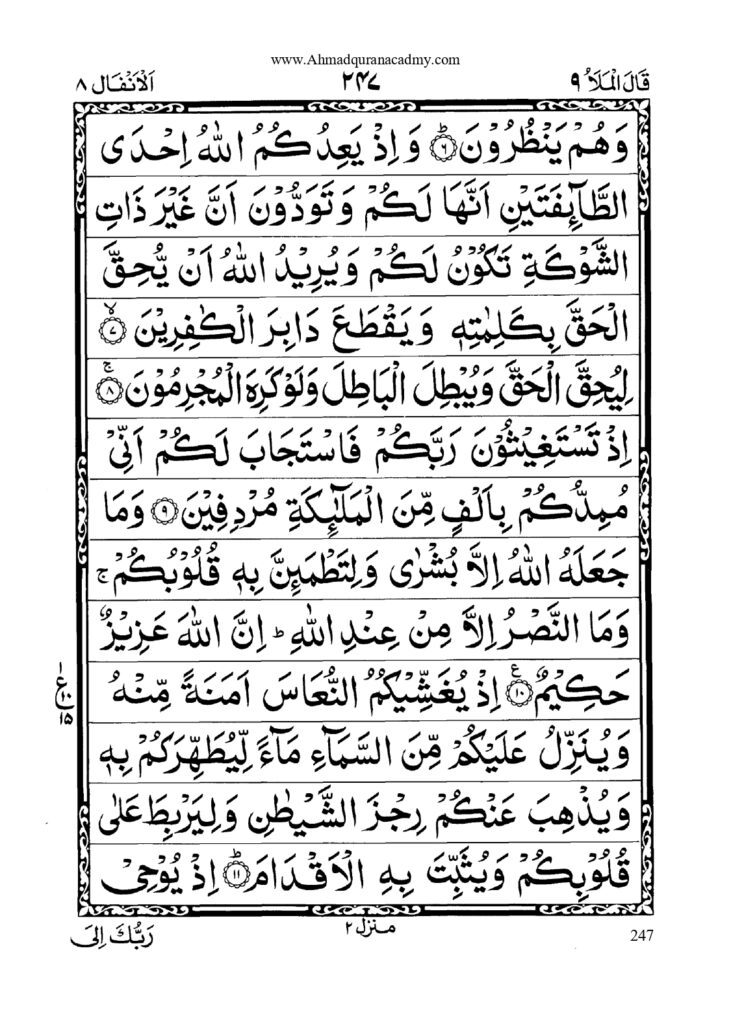 www.Ahmadquranacadmy.com
قَالَ الْمَلَاُ ٩
٢٤٧
اَلْاَنْفَال ٨
وَهُمْ يَنْظُرُوْنَ ؕ﴿٦﴾ وَ اِذْ يَعِدُكُمُ اللّٰهُ اِحْدَى
الطَّآئِفَتَيْنِ اَنَّهَا لَكُمْ وَ تَوَدُّوْنَ اَنَّ غَيْرَ ذَاتِ
الشَّوْكَةِ تَكُوْنُ لَكُمْ وَ يُرِيْدُ اللّٰهُ اَنْ يُّحِقَّ
الْحَقَّ بِكَلِمٰتِهٖ وَ يَقْطَعَ دَابِرَ الْكٰفِرِيْنَ ۙ﴿٧﴾
لِيُحِقَّ الْحَقَّ وَيُبْطِلَ الْبَاطِلَ وَلَوْ كَرِهَ الْمُجْرِمُوْنَ ۚ﴿٨﴾
اِذْ تَسْتَغِيْثُوْنَ رَبَّكُمْ فَاسْتَجَابَ لَكُمْ اَنِّيْ
مُمِدُّكُمْ بِاَلْفٍ مِّنَ الْمَلٰٓئِكَةِ مُرْدِفِيْنَ ﴿٩﴾ وَمَا
جَعَلَهُ اللّٰهُ اِلَّا بُشْرٰى وَ لِتَطْمَئِنَّ بِهٖ قُلُوْبُكُمْ ۚ
وَمَا النَّصْرُ اِلَّا مِنْ عِنْدِ اللّٰهِ ؕ اِنَّ اللّٰهَ عَزِيْزٌ
حَكِيْمٌ ﴿١٠﴾ ع اِذْ يُغَشِّيْكُمُ النُّعَاسَ اَمَنَةً مِّنْهُ
١
ع
١٠
١٥
وَ يُنَزِّلُ عَلَيْكُمْ مِّنَ السَّمَآءِ مَآءً لِّيُطَهِّرَكُمْ بِهٖ
وَيُذْهِبَ عَنْكُمْ رِجْزَ الشَّيْطٰنِ وَ لِيَرْبِطَ عَلٰى
قُلُوْبِكُمْ وَيُثَبِّتَ بِهِ الْاَقْدَامَ ؕ﴿١١﴾ اِذْ يُوْحِيْ
منزل ٢
رَبُّكَ اِلَى
247